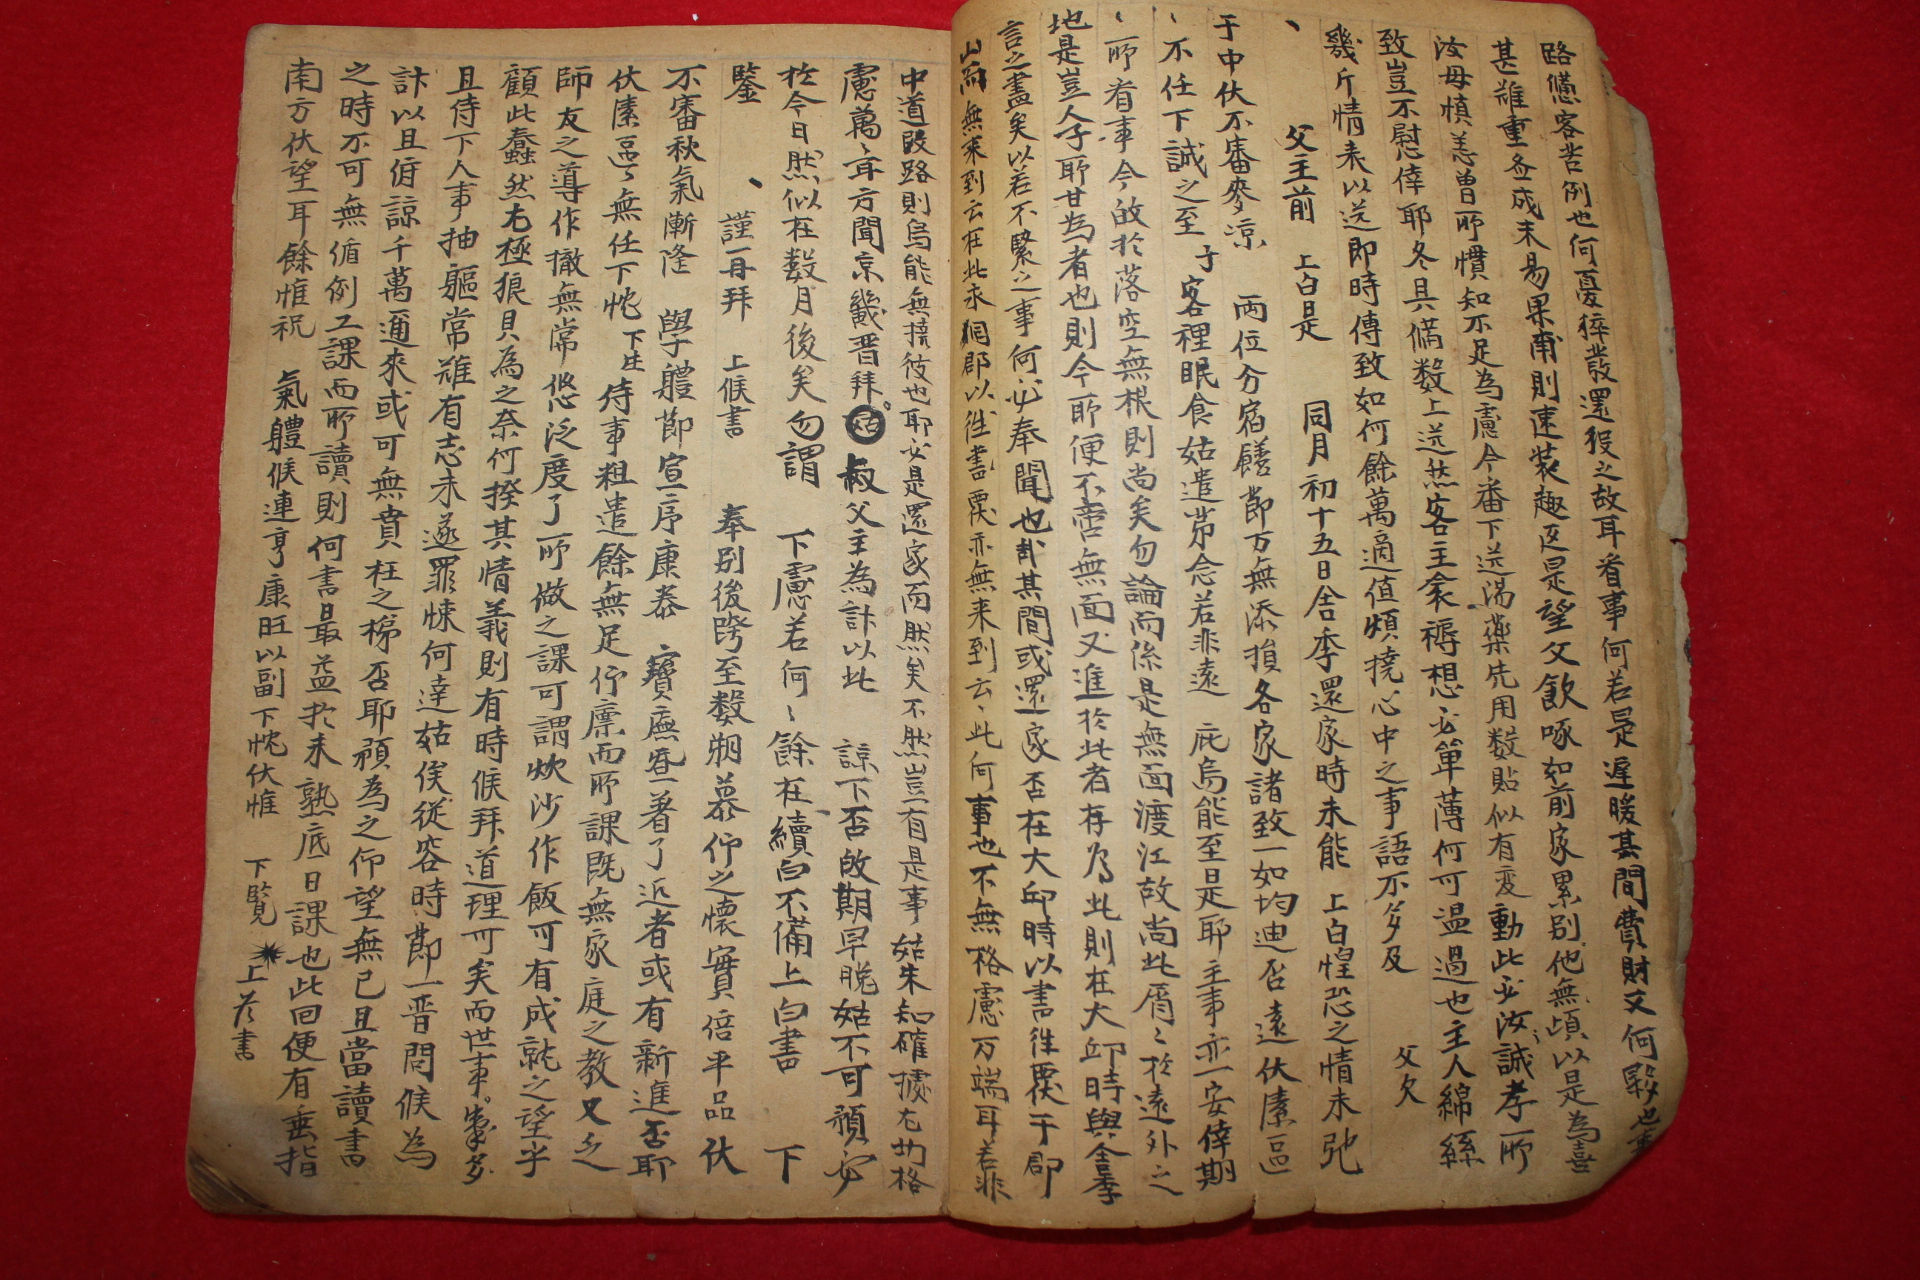 路憊客苦例也何憂猝裝還歸之故耳省事何若是遲暖其間費財又何夥也事
甚難重無成未易果肅則速裝趣返是望父飮啄如前家累別他無頉以是為喜
汝母慎恙曾所慣知不足為慮今番下送湯藥先用数貼似有変動此必汝誠孝所
致豈不慰倖耶冬具滿数上送然客主衾褥想必單薄何可温過也主人綿絲
幾斤情表以送即時傳致如何餘萬適值煩撓心中之事語不多及 父欠
父主前 上白是 同月初十五日舍季還家時未能 上白惶恐之情未弛
于中伏不審麥凉 兩位分宿饍節万無添損各家諸致一如均迪否遠伏溸區
不任下誠之至 子客裡眠食姑遣苐念若非遠 庇烏能至是耶主事亦一安倖期
所看事今故於落空無根則尚矣勿論而係是無面渡江故尚此屑〻於遠外之
地是豈人子耶甘為者也則今所便不啻無面又進於此者存為此則在大邱時與舍季
言之盡矣以若不緊之事何必奉聞也哉其間或還家否在大邱時以書徃覆于郡
山而無来到云在此永同郡以徃書覆亦無来到云〻此何事也不無格慮万端耳若非
中道歧路則烏能無撓彼也耶必是還家而然矣不然豈有是事姑未知確據尤切格
慮萬〻年方聞京畿晋拜 叔父主為計以此 諒下否啟期早晚姑不可預必
於今日然似在数月後矣勿謂 下慮若何〻餘在續白不備上白書 下
鑒 謹再拜 上候書 奉別後跨至数朔慕仰之懷實倍平品伏
不審秋氣漸隆 學軆節宣序康泰 寶廡眷一著了近者或有新進否耶
伏溸區〻無任下忱 下生侍事粗遣餘無足仰廪而所課旣無家庭之教又乏
師友之導作撤無常悠泛度了所做之課可謂炊沙作飯可有成就之望乎
顧此蠢然尤極狼貝為之奈何揆其情義則有時候拜道理可矣而世事多
且侍下人事抽軀常難有志未遂罪悚何達姑俟從容時節一晋問候為
計以且俯諒千萬邇來或可無賁枉之梯否耶預為之仰望無已且當讀書
之時不可無循例工課而所讀則何書最益於未熟底日課也此回便有垂指
南方伏望耳餘惟祝 氣軆候連亨康旺以副下忱伏惟 下覧 上荅書